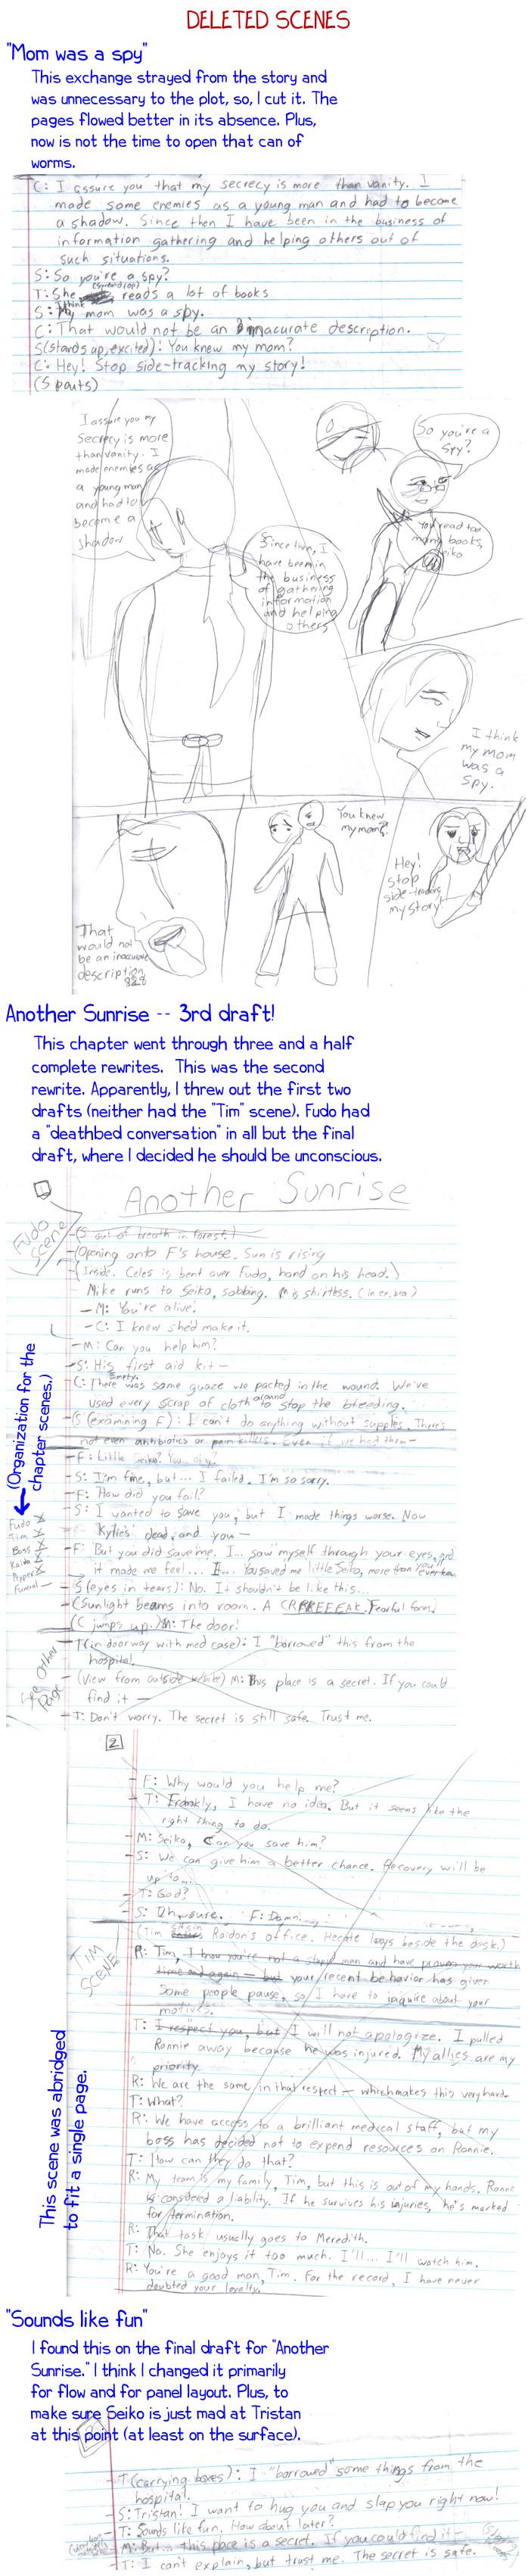 DELETED SCENES
"Mom was a spy"
This exchange strayed from the story and
was unnecessary to the plot, so, I cut it. The
pages flowed better in its absence. Plus,
now is not the time to open that can of
worms.
C: I assure you that my secrecy is more than vanity. I
made some enemies as a young man and had to become
a shadow. Since then I have been in the business of
information gathering and helping others out of
such situations.
S: So you're a spy?
T: She reads a lot of books
S: I think my mom was a spy.
C: That would not be an inmacurate description.
S(stands up, excited): You knew my mom?
C: Hey! Stop side-tracking my story!
(S pouts)
I assure you my
Secrecy is more
than vanity. I
made enemies as
a young man
and had to
become a
shadow
So you're a
Spy?
You read too
many books,
Seiko
Since then, I
have been in
the business
of gathering
information
and helping
others
I think
my mom
was a
spy.
You knew
my mom?
Hey!
stop
side-tracking
my story!
That
would not
be an inaccurate
description
828
Another Sunrise -- 3rd draft!
This chapter went through three and a half
complete rewrites. This was the second
rewrite. Apparently, I threw out the first two
drafts (neither had the "Tim" scene). Fudo had
a "deathbed conversation" in all but the final
draft, where I decided he should be unconscious.
1
Another Sunrise
Fudo
scene
(S out of breath in forest.)
(Opening onto F's house. Sun is rising
(Inside. Celes is bent over Fudo, hand on his head.)
Mike runs to Seiko, sobbing. M is shirtless.
- M: You're alive.
- C: I knew she'd make it.
- M: Can you help him?
- S: His first aid kit -
C: Empty. There was some guaze we packed in the wound. We've
used every scrap of cloth around to stop the bleeding.
(S (examining F): I can't do anything without supplies. There's
not even antibiotics or pain killers. Even if we had them -
- F: Little Seiko? You... okay?
S: I'm fine, but... I failed. I'm so sorry.
- F: How did you fail?
S: I wanted to save you, but I made things worse. Now
Kylie's dead, and you —
F: But you did save me. I... saw myself through your eyes, and
it made me feel ... I... You saved me little Seiko, more than you ever knew.
S (eyes in tears): No. It shouldn't be like this...
(Sunlight beams into room. A CRRREEEAK. Fearful faces)
(C jumps up.) M: The door!
T (in doorway with med case): I "borrowed" this from the
hospital.
(View from outside M: This place is a secret. If you could
find it —
T: Don't worry. The secret is still safe. Trust me.
(Organization for the
chapter scenes.)
Fudo X
Tim X
Boss X
Raidon X
Pepper X
Funeral -
See Other
Page
2
F: Why would you help me?
T: Frankly, I have no idea. But it seems like the
right thing to do.
M: Seiko, Can you save him?
S: We can give him a better chance. Recovery will be
up to...
T: God?
S: Uh, sure. F: Damn...
TIM
SCENE
(Tim sits in Raidon's office. Hecate lays beside the desk.)
R: Tim, I know you're not a stupid man and have proven your worth
time and again — but your recent behavior has given
Some people pause, so I have to inquire about your
motives.
T: I respect you, but I will not apologize. I pulled
Ronnie away because he was injured. My allies are my
priority.
R: We are the same in that respect — which makes this very hard.
T: What?
R: We have access to a brilliant medical staff, but my
boss has decided not to expend resources on Ronnie.
T: How can they do that?
R: My team is my family, Tim, but this is out of my hands. Ronnie
is considered a liability. If he survives his injuries, he's marked
for termination.
R: That task usually goes to Meredith.
T: No. She enjoys it too much. I'll... I'll watch him.
R: You're a good man, Tim. For the record, I have never
doubted your loyalty.
This scene was abridged
to fit a single page.
"Sounds like fun"
I found this on the final draft for "Another
Sunrise." I think I changed it primarily
for flow and for panel layout. Plus, to
make sure Seiko is just mad at Tristan
at this point (at least on the surface).
T (carrying boxes): I "borrowed" some things from the
hospital.
S: Tristan! I want to hug you and slap you right now!
T: Sounds like fun. How about later?
M: But... this place is a secret. If you could find it -
T: I can't explain, but trust me. The secret is safe.